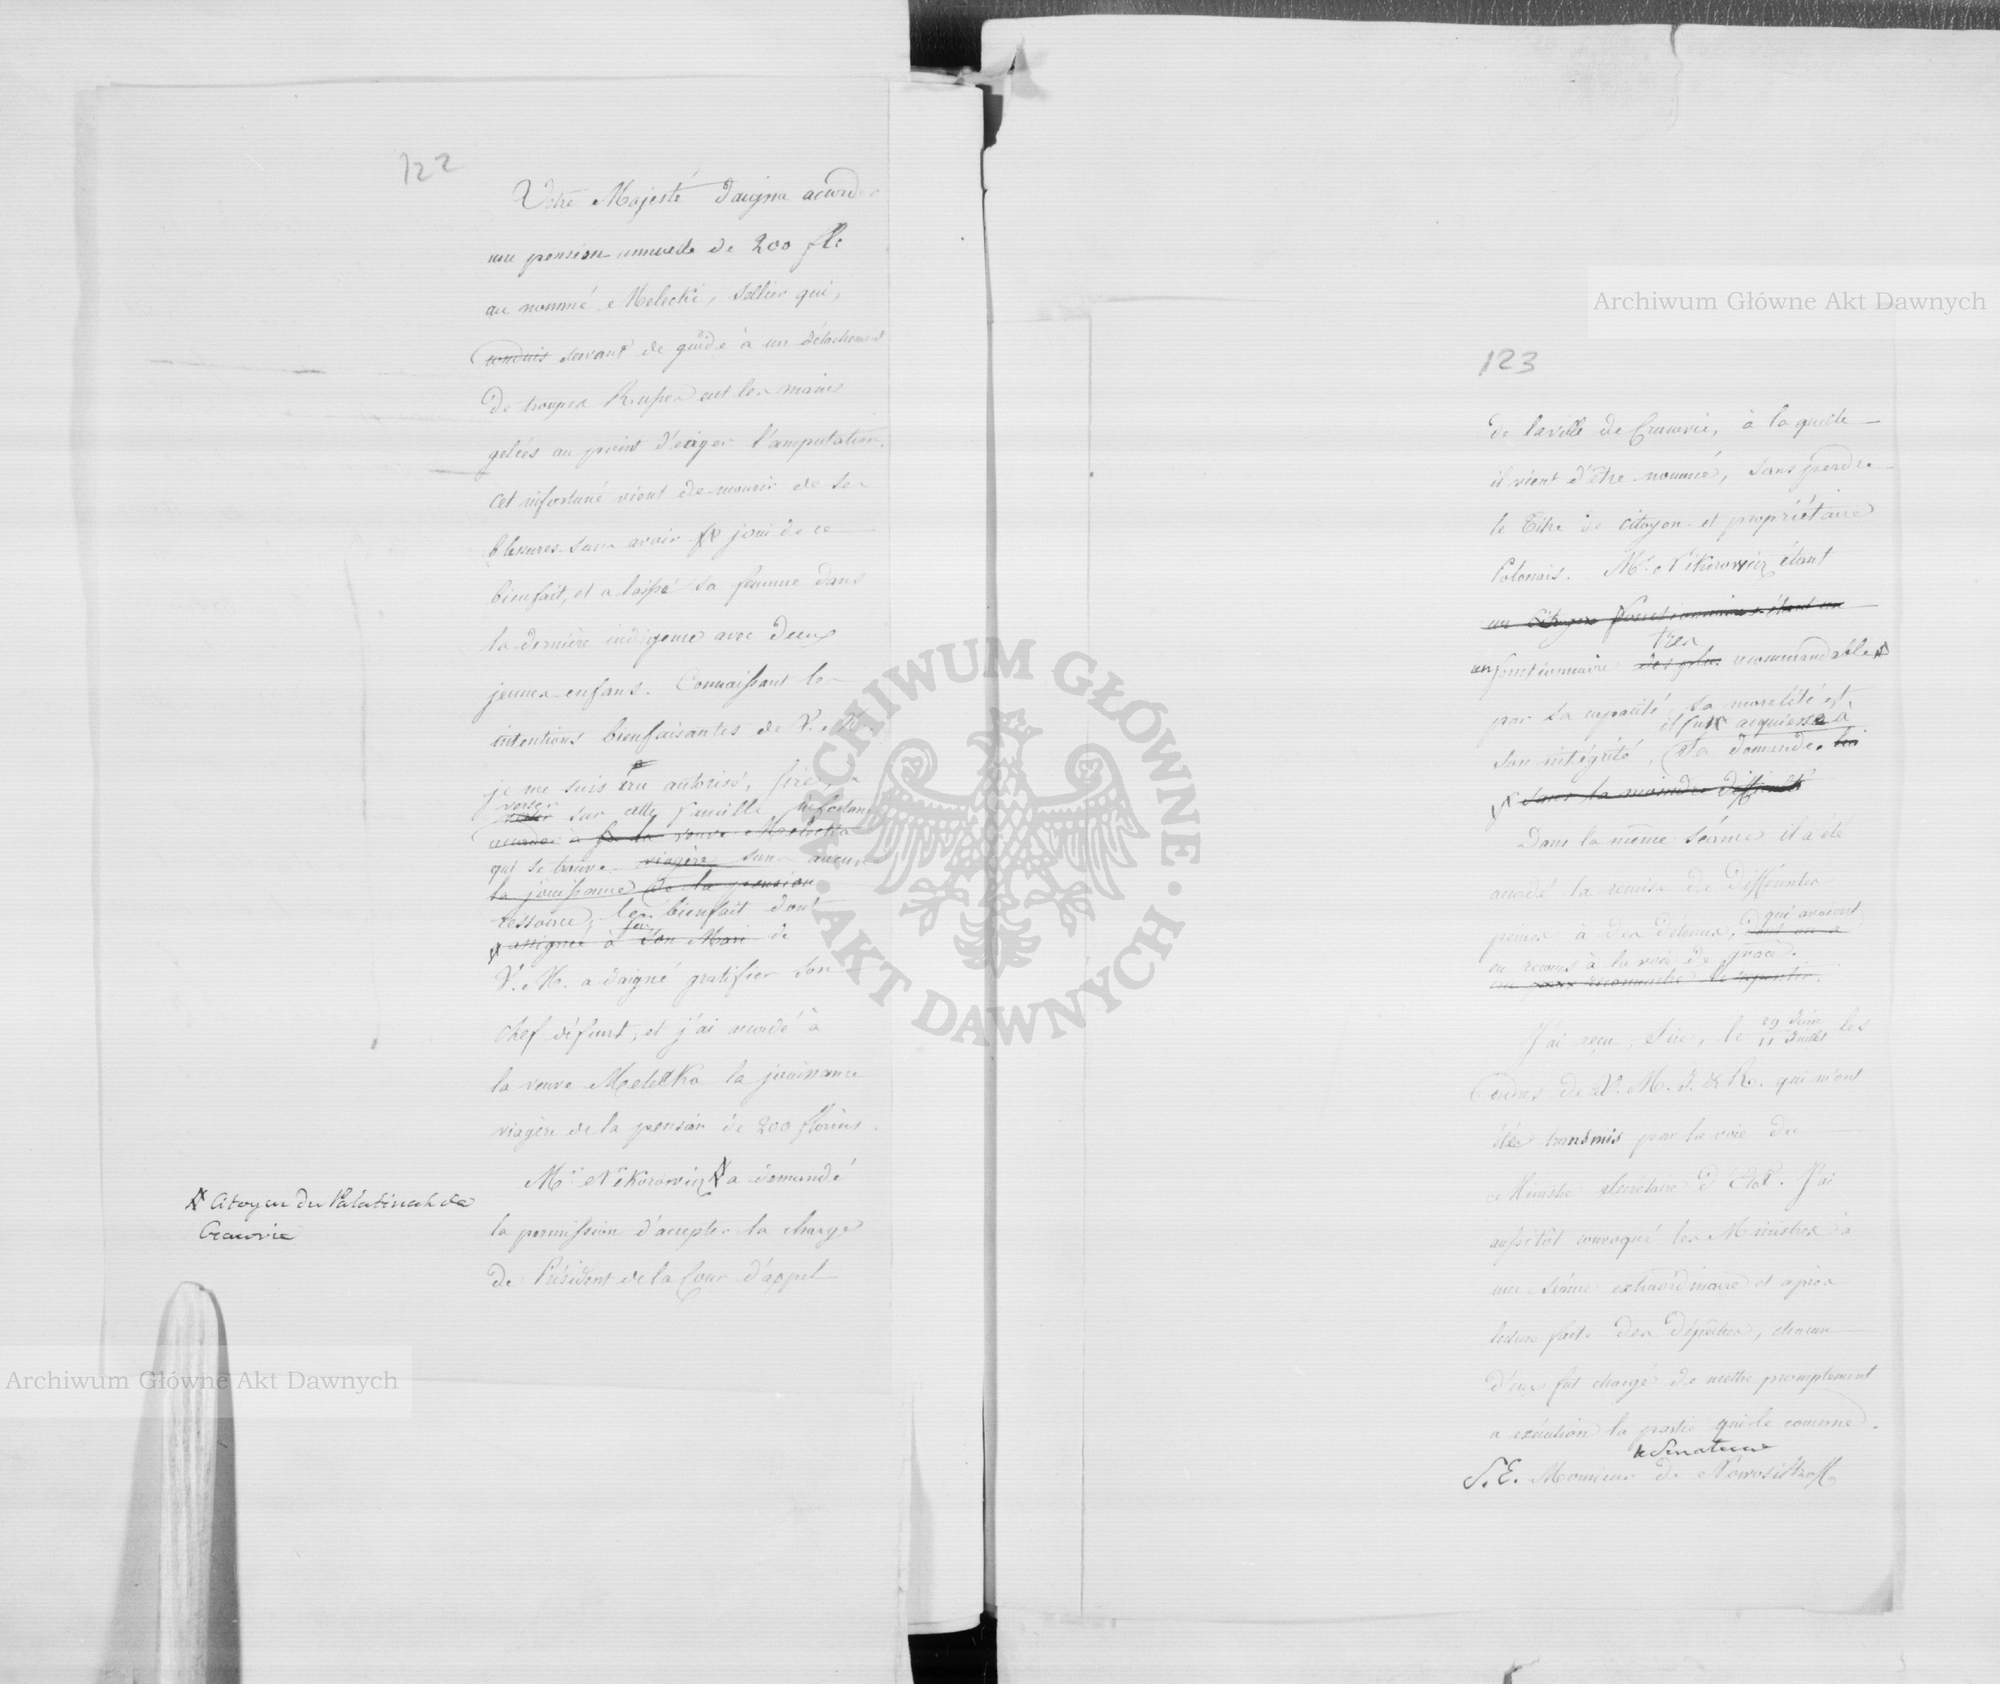 122
Votre Majesté daigna accorder
une pension annuelle de 200 fl:
au nommé Melecki, sellier qui,
conduis servant de guide à un détachement
de troupes Russes eut les mains
gelées au point d'exiger l'amputation.
Cet infortuné vient de mourir de ses
blessures sans avoir joui de ce
bienfait, et a laissé sa femme dans
la dernière indigence avec deux
jeunes enfans. Connaissant les
intentions bienfaisantes de V. M.
je me suis cru autorisé, Sire, à
verser sur cette famille infortunée
accorder à la veuve Melecka
qui se trouve viagère sans aucune
la jouissance de la pension
ressource, les bienfait dont
assignée à feu son Mari de
V. M. a daigné gratifier son
chef défunt, et j'ai accordé à
la veuve Melecka la jouissance
viagère de la pension de 200 florins.
Mr. Nikorowicz a demandé
citoyen du Palatinat de
Cracovie
la permission d'accepter la charge
de Président de la Cour d'appel
123
de la ville de Cracovie, à laquelle
il vient d'être nommé, sans perdre
le titre de citoyen et propriétaire
Polonais. Mr. Nikorowicz étant
très
un fonctionnaire des plus recommandable
par sa capacité, sa moralité et
il fut acquiescé à
son intégrité, sa demande.
sans la moindre difficulté
Dans la même séance il a été
accordé la remise de différentes
peines à des détenus, qui avaient
eu recours à la voie de grâce.
J'ai reçu, Sire, le 29 Juin / 11 Juillet les
ordres de V. M. I. & R. qui m'ont
été transmis par la voie du
Ministre Secrétaire d'Etat. J'ai
aussitôt convoqué les Ministres à
une séance extraordinaire et après
lecture faite des dépêches, chacun
d'eux fut chargé de mettre promptement
a exécution la partie qui le concerne.
le Senateur
S. E. Monsieur de Nowosiltzoff
Archiwum Główne Akt Dawnych
Archiwum Główne Akt Dawnych
ARCHIWUM GŁÓWNE
AKT DAWNYCH